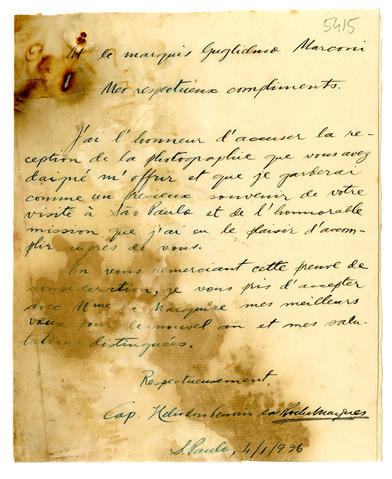 5415
M le marquis Guglielmo Marconi
Mes respectueux compliments.
J'ai l'honneur d'accuser la re-
ception de la photographie que vous avez
daigné m'offrir et que je garderai
comme un précieux souvenir de votre
visite à São Paulo et de l'honorable
mission que j'ai eu le plaisir d'accom-
plir auprès de vous.
En vous remerciant cette preuve de
consideration, je vous pris d'accepter
avec Mme la Marquise mes meilleurs
vœux pour le nouvel an et mes salu-
tations distinguées.
Respectueusement,
Cap.
S. Paulo, 4/1/936